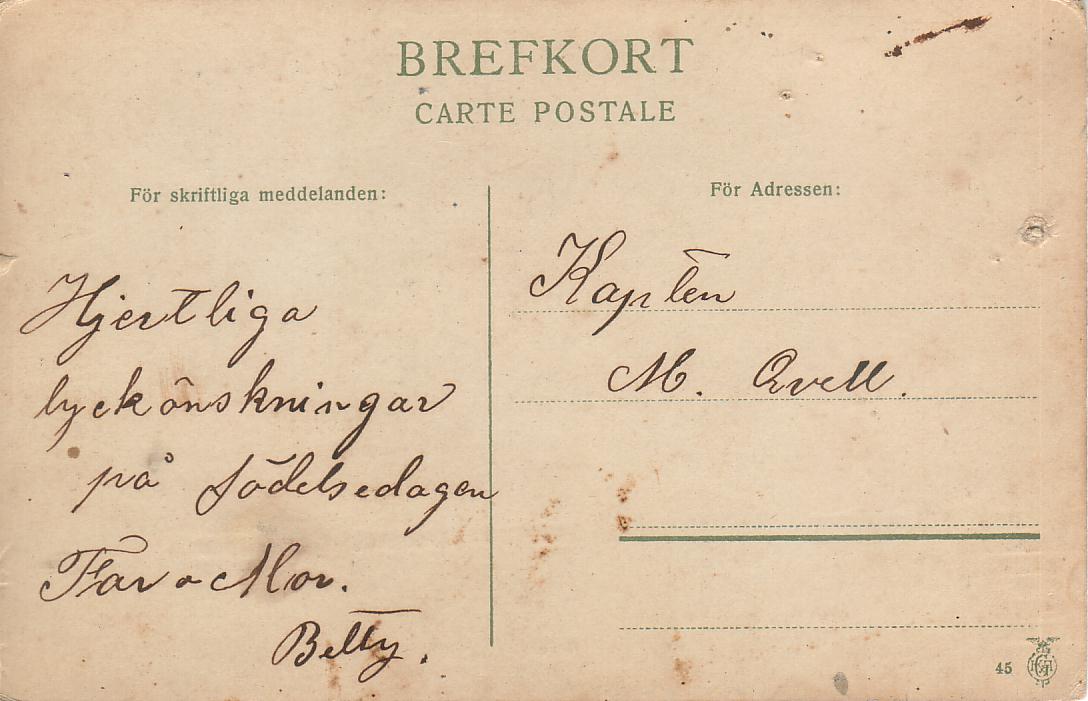 BREFKORT
CARTE POSTALE
För skriftliga meddelanden:
Hjertliga
lyckönskningar
på födelsedagen
Far o Mor.
Betty.
För Adressen:
Kapten
M. Qvell.
45